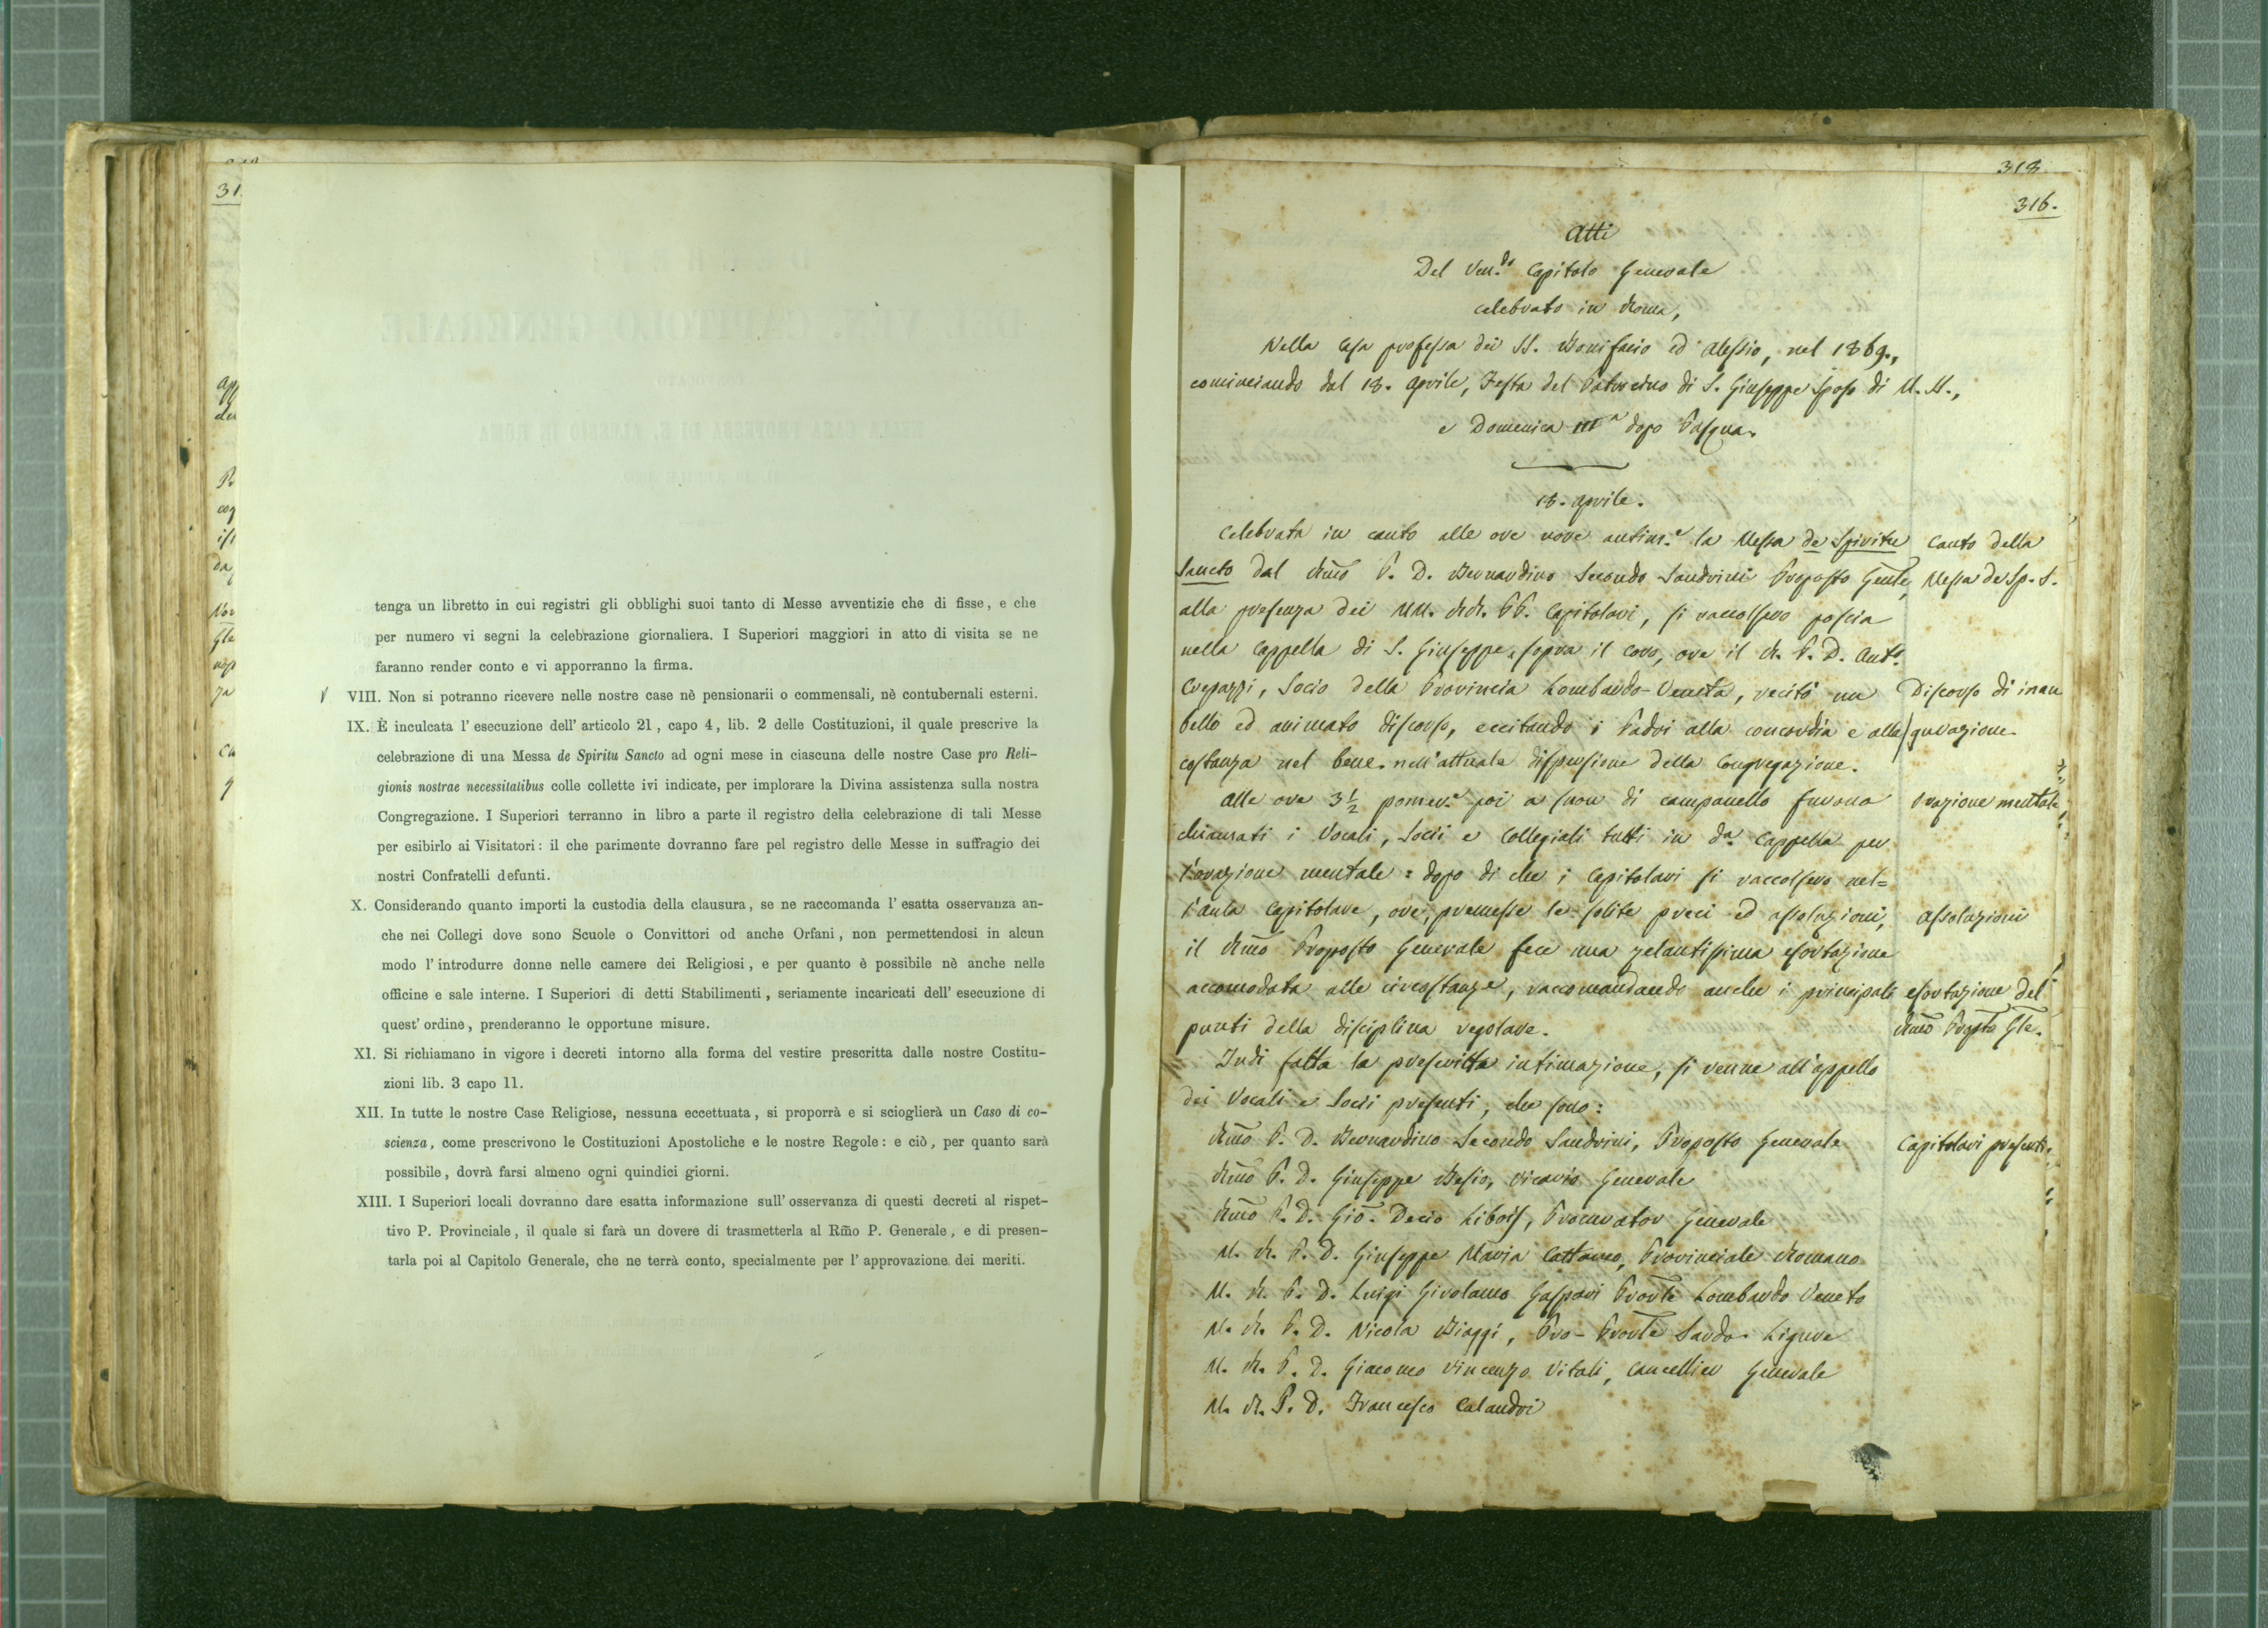 31
tenga un libretto in cui registri gli obblighi suoi tanto di Messe avventizie che di fisse, e che
per numero vi segni la celebrazione giornaliera. I Superiori maggiori in atto di visita se ne
faranno render conto e vi apporranno la firma.
VIII. Non si potranno ricevere nelle nostre case nè pensionarii o commensali, nè contubernali esterni.
IX. È inculcata l' esecuzione dell' articolo 21, capo 4, lib. 2 delle Costituzioni, il quale prescrive la
celebrazione di una Messa de Spiritu Sancto ad ogni mese in ciascuna delle nostre Case pro Reli-
gionis nostrae necessitatibus colle collette ivi indicate, per implorare la Divina assistenza sulla nostra
Congregazione. I Superiori terranno in libro a parte il registro della celebrazione di tali Messe
per esibirlo ai Visitatori: il che parimente dovranno fare pel registro delle Messe in suffragio dei
nostri Confratelli defunti.
X. Considerando quanto importi la custodia della clausura, se ne raccomanda l' esatta osservanza an-
che nei Collegi dove sono Scuole o Convittori od anche Orfani, non permettendosi in alcun
modo l' introdurre donne nelle camere dei Religiosi, e per quanto è possibile nè anche nelle
officine e sale interne. I Superiori di detti Stabilimenti, seriamente incaricati dell' esecuzione di
quest' ordine, prenderanno le opportune misure.
XI. Si richiamano in vigore i decreti intorno alla forma del vestire prescritta dalle nostre Costitu-
zioni lib. 3 capo 11.
XII. In tutte le nostre Case Religiose, nessuna eccettuata, si proporrà e si scioglierà un Caso di co-
scienza, come prescrivono le Costituzioni Apostoliche e le nostre Regole: e ciò, per quanto sarà
possibile, dovrà farsi almeno ogni quindici giorni.
XIII. I Superiori locali dovranno dare esatta informazione sull' osservanza di questi decreti al rispet-
tivo P. Provinciale, il quale si farà un dovere di trasmetterla al Rm̃o P. Generale, e di presen-
tarla poi al Capitolo Generale, che ne terrà conto, specialmente per l' approvazione dei meriti.
318
316.
Atti
Del Ven.do Capitolo Generale
celebrato in Roma,
Nella Casa professa dei SS. Bonifacio ed Alessio, nel 1869.,
cominciando dal 18. Aprile, Festa del Patrocinio di S. Giuseppe Sposo di M. M.,
e Domenica IIIa dopo Pasqua.
18. Aprile.
Celebrata in canto alle ore nove antim.e la Messa de Spiritu
Canto della
Sancto dal Rm̃o P. D. Bernardino Secondo Sandrini Proposto Gen̄le,
Messa de Sp. S.
alla presenza dei MM. RR. PP. Capitolari, si raccolsero poscia
nella Cappella di S. Giuseppe, sopra il coro, ove il R. P. D. Ant.o
Crepazzi, Socio della Provincia Lombardo-Veneta, recitò un
Discorso di inau
bello ed animato discorso, eccitando i Padri alla concordia e alla
gurazione.
costanza nel bene nell'attuale dispersione della Congregazione.
Alle ore 3½ pomer.e poi a suon di campanello furono
Orazione mentale
chiamati i Vocali, Socii e Collegiali tutti in da. Cappella per
l'orazione mentale: dopo di che i Capitolari si raccolsero nel=
l'aula Capitolare, ove, premesse le solite preci ed assoluzioni,
Assoluzioni
il Rm̃o Proposto Generale fece una zelantissima esortazione
accomodata alle circostanze, raccomandando anche i principali
esortazione del
punti della disciplina regolare.
Rm̃o Propto Gle.
Indi fatta la prescritta intimazione, si venne all'appello
dei Vocali e Socii presenti, che sono:
Rm̃o P. D. Bernardino Secondo Sandrini, Proposto Generale
Capitolari presenti
Rm̃o P. D. Giuseppe Besio, Vicario Generale
Rm̃o P. D. Gio. Decio Libois, Procurator Generale
M. R. P. D. Giuseppe Maria Cattaneo, Provinciale Romano
M. R. P. D. Luigi Girolamo Gaspari Prov̄le Lombardo Veneto
M. R. P. D. Nicola Biaggi, Pro-Prov̄le Sardo-Ligure
M. R. P. D. Giacomo Vincenzo Vitali, Cancellier Generale
M. R. P. D. Francesco Calandri